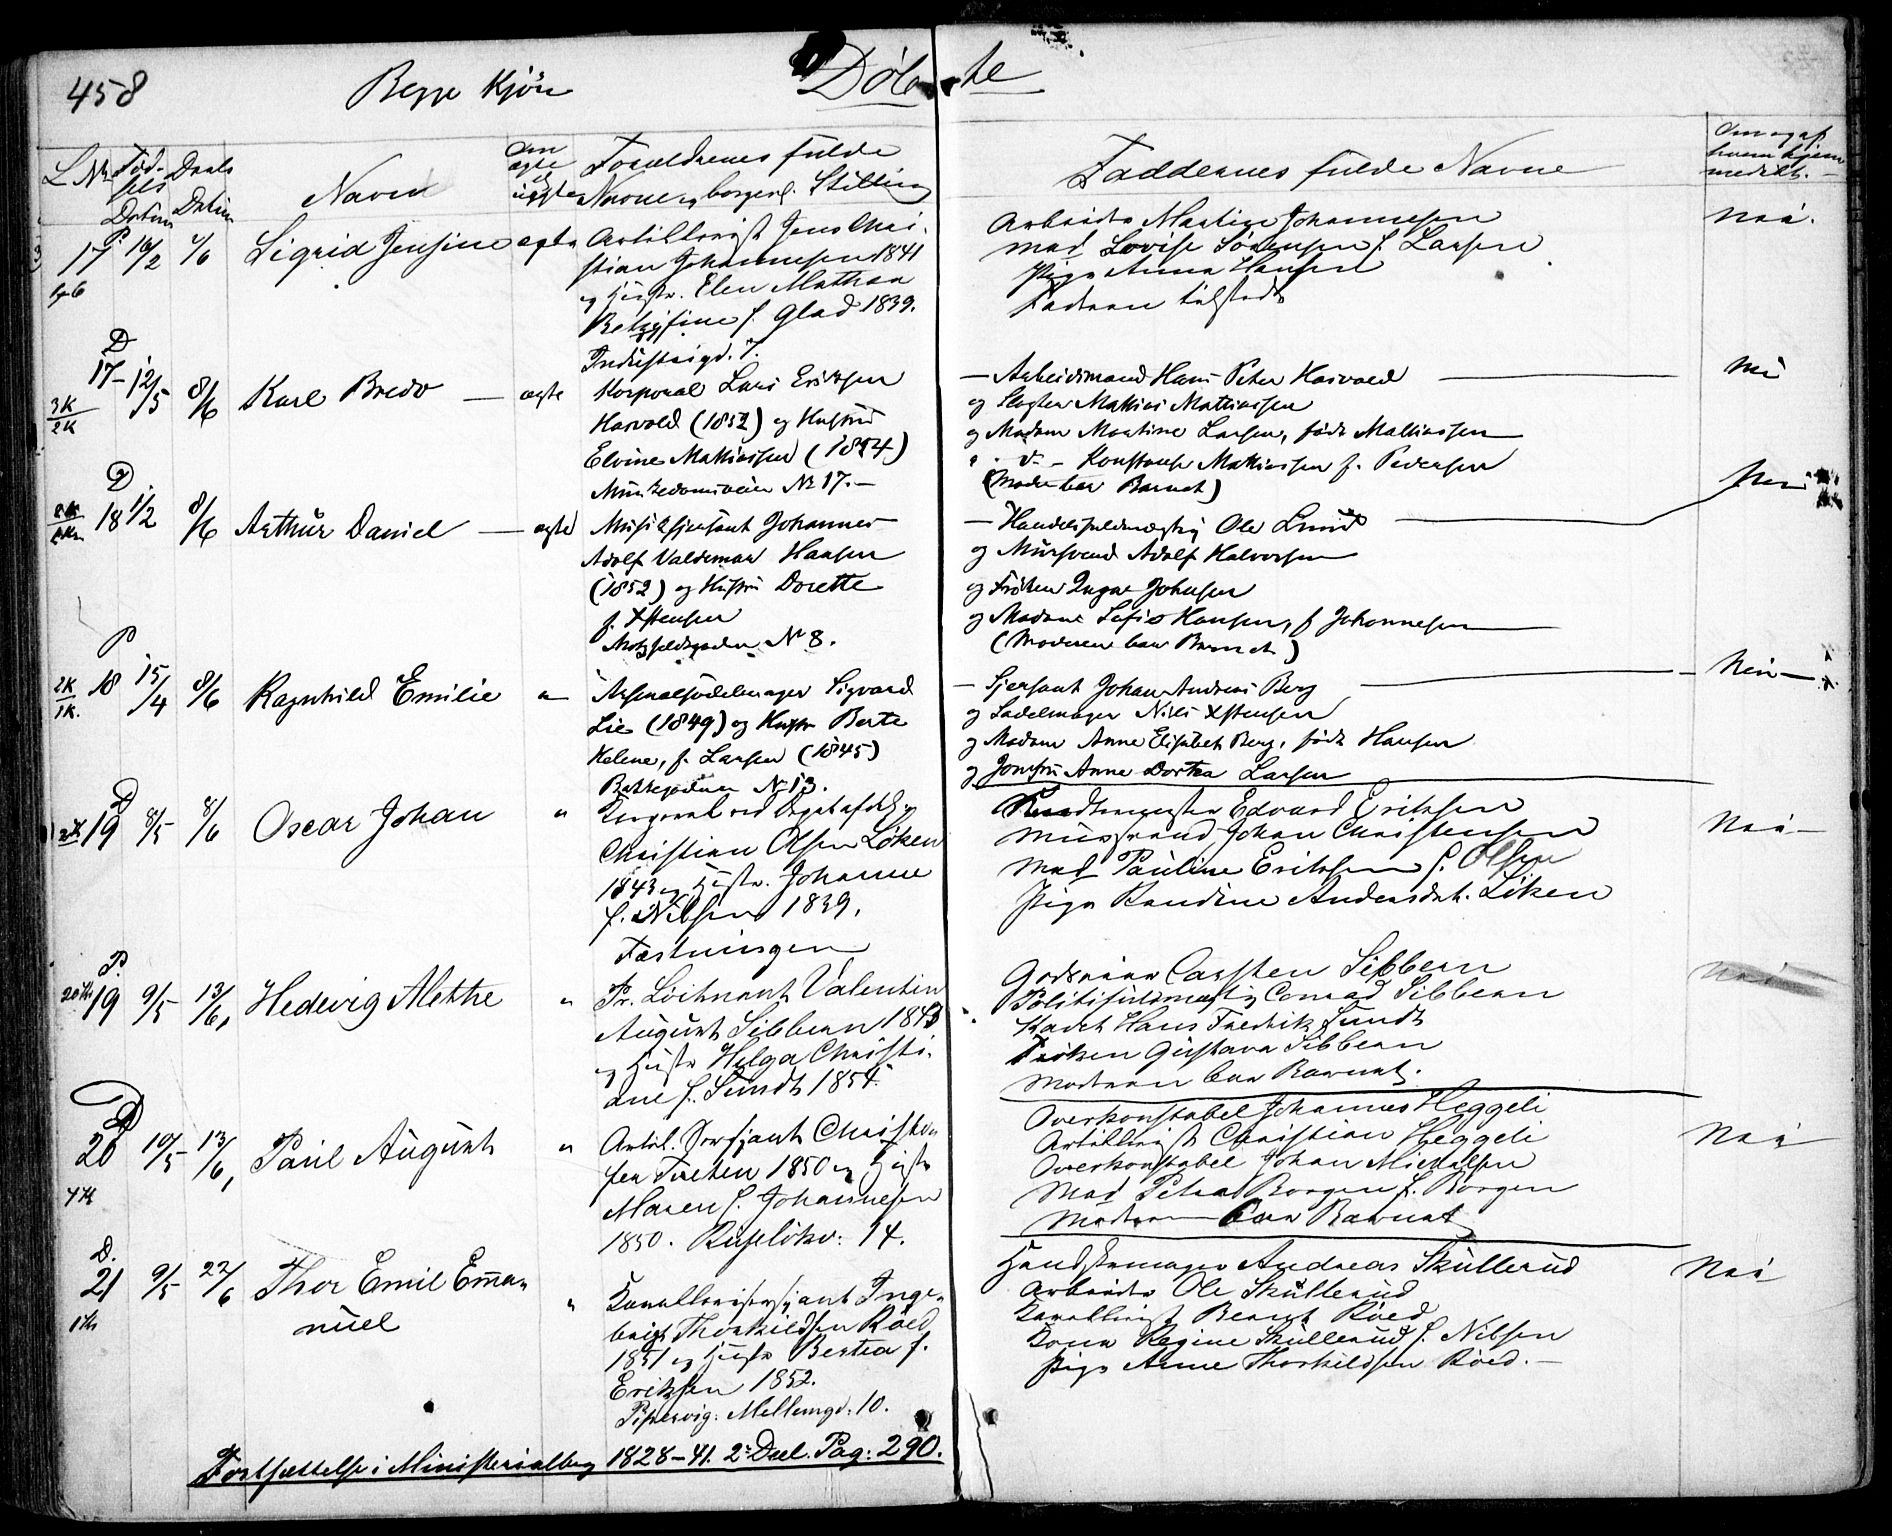 458 Begge Kjön Döbte
L. Nr. Föd- Daabs
sels
Datum Datum
Navn
Om
ægte
el.
uægte
Forældrenes fulde
Navne, borgerl. Stilling
Faddernes fulde Navne
P.
17 16/2 4/6 Sigrid Jensine ægte
Artillerist Jens Chri-
stian Johannesen 1841
og Hustr. Elen Mathea
f. Glad 1839.
Industrigd. 7.
Arbeids Martin Johannesen
Mad Lovise Sörensen f. Larsen
Pige Anna Hansen
Faderen tilstede
Nei.
D
17 12/5 8/6 Karl Bredo — ægte
3K
2K
Korporal Lars Eriksen
Harvold (1852) og Hustru
Elvine Mathiassen (1854)
Munkedamsveien Nr 17.—
— Arbeidsmand Hans Peter Harvold —
og Slagter Mathias Mathiassen
og Madam Martine Larsen, födt Mathiassen
" d. — Konstanse Mathiassen f. Pedersen
(Moder bar Barnet)
Nei
D.
18 1/2 8/6 Arthur Daniel — ægte
Musiksersjant Johannes
Adolf Valdemar Hansen
(1852) og Hustru Dorette
f. Xstensen
Motzfeldtgaden Nr 8.
— Handelsfuldmægtig Ole Lund —
og Mursvend Adolf Halvorsen
og Fröken Inga Johnsen
og Madame Sofie Hansen, f Johannesen
(Moderen bar Barnet)
Nei
P
18 15/4 8/6 Ragnhild Emilie "
2K
1K.
Arsenalsadelmager Sigvard
Lie (1849) og Hustr Berte
Helene, f. Larsen (1845)
Bakkegaden Nr 13.
— Sjersant Johan Andreas Berg —
og Sadelmager Nils Xstensen
og Madam Anne Elisabet Berg, födt Hansen
og Jomfru Anne Dortea Larsen
Nei —
D
19 8/5 8/6 Oscar Johan "
Korporal ved
Christian Olsen Löken
1843 og Hustr. Johanne
f. Nilsen 1839.
Fæstningen
Edvard Eriksen
Mursvend Johan Christensen
Mad Pauline Eriksen f. Olsen
Pige Randine Andersdat. Löken
Nei —
P.
19 9/5 13/6, Hedevig Alethe "
Pr. Löitnant Valentin
August Sibbern 1843
og Hustr Helga Christi-
ane f. Sundt 1854.
Godseier Carsten Sibbern
Politifuldmægtig Conrad Sibbern
Kadet Hans Fredrik Sundt
Fröken Gustava Sibbern
Moderen bar Barnet.
Nei
D
20 10/5 13/6, Paul August "
4K
Artil. Sersjant Christo-
fer Tveten 1850 og Hustr
Maren f. Johannesen
1850. Ruselökv: 14.
Overkonstabel Johannes Heggeli
Artillerist Christian Heggeli
Overkonstabel Johan Mickelsen
Mad Petra Borgen f. Borgen
Moderen bar Barnet
Nei
D.
21 9/5 22/6 Thor Emil Ema-
nuel "
1K
Kavallerisersjant Inge-
brigt Thorkildsen Röed
1851 og Hustr Bertea f.
Eriksen 1852.
Pipervig: Mellemgd. 10.
Handskemager Andreas Skullerud
Arbeids Ole Skullerud
Kavallerist Bernt Röed
Kona Regine Skullerud f. Nilsen
Pige Anne Thorkildsen Röed. —
Nei
Fortsættelse i Ministerialbog 1828–41. 2. Deel. Pag: 290.